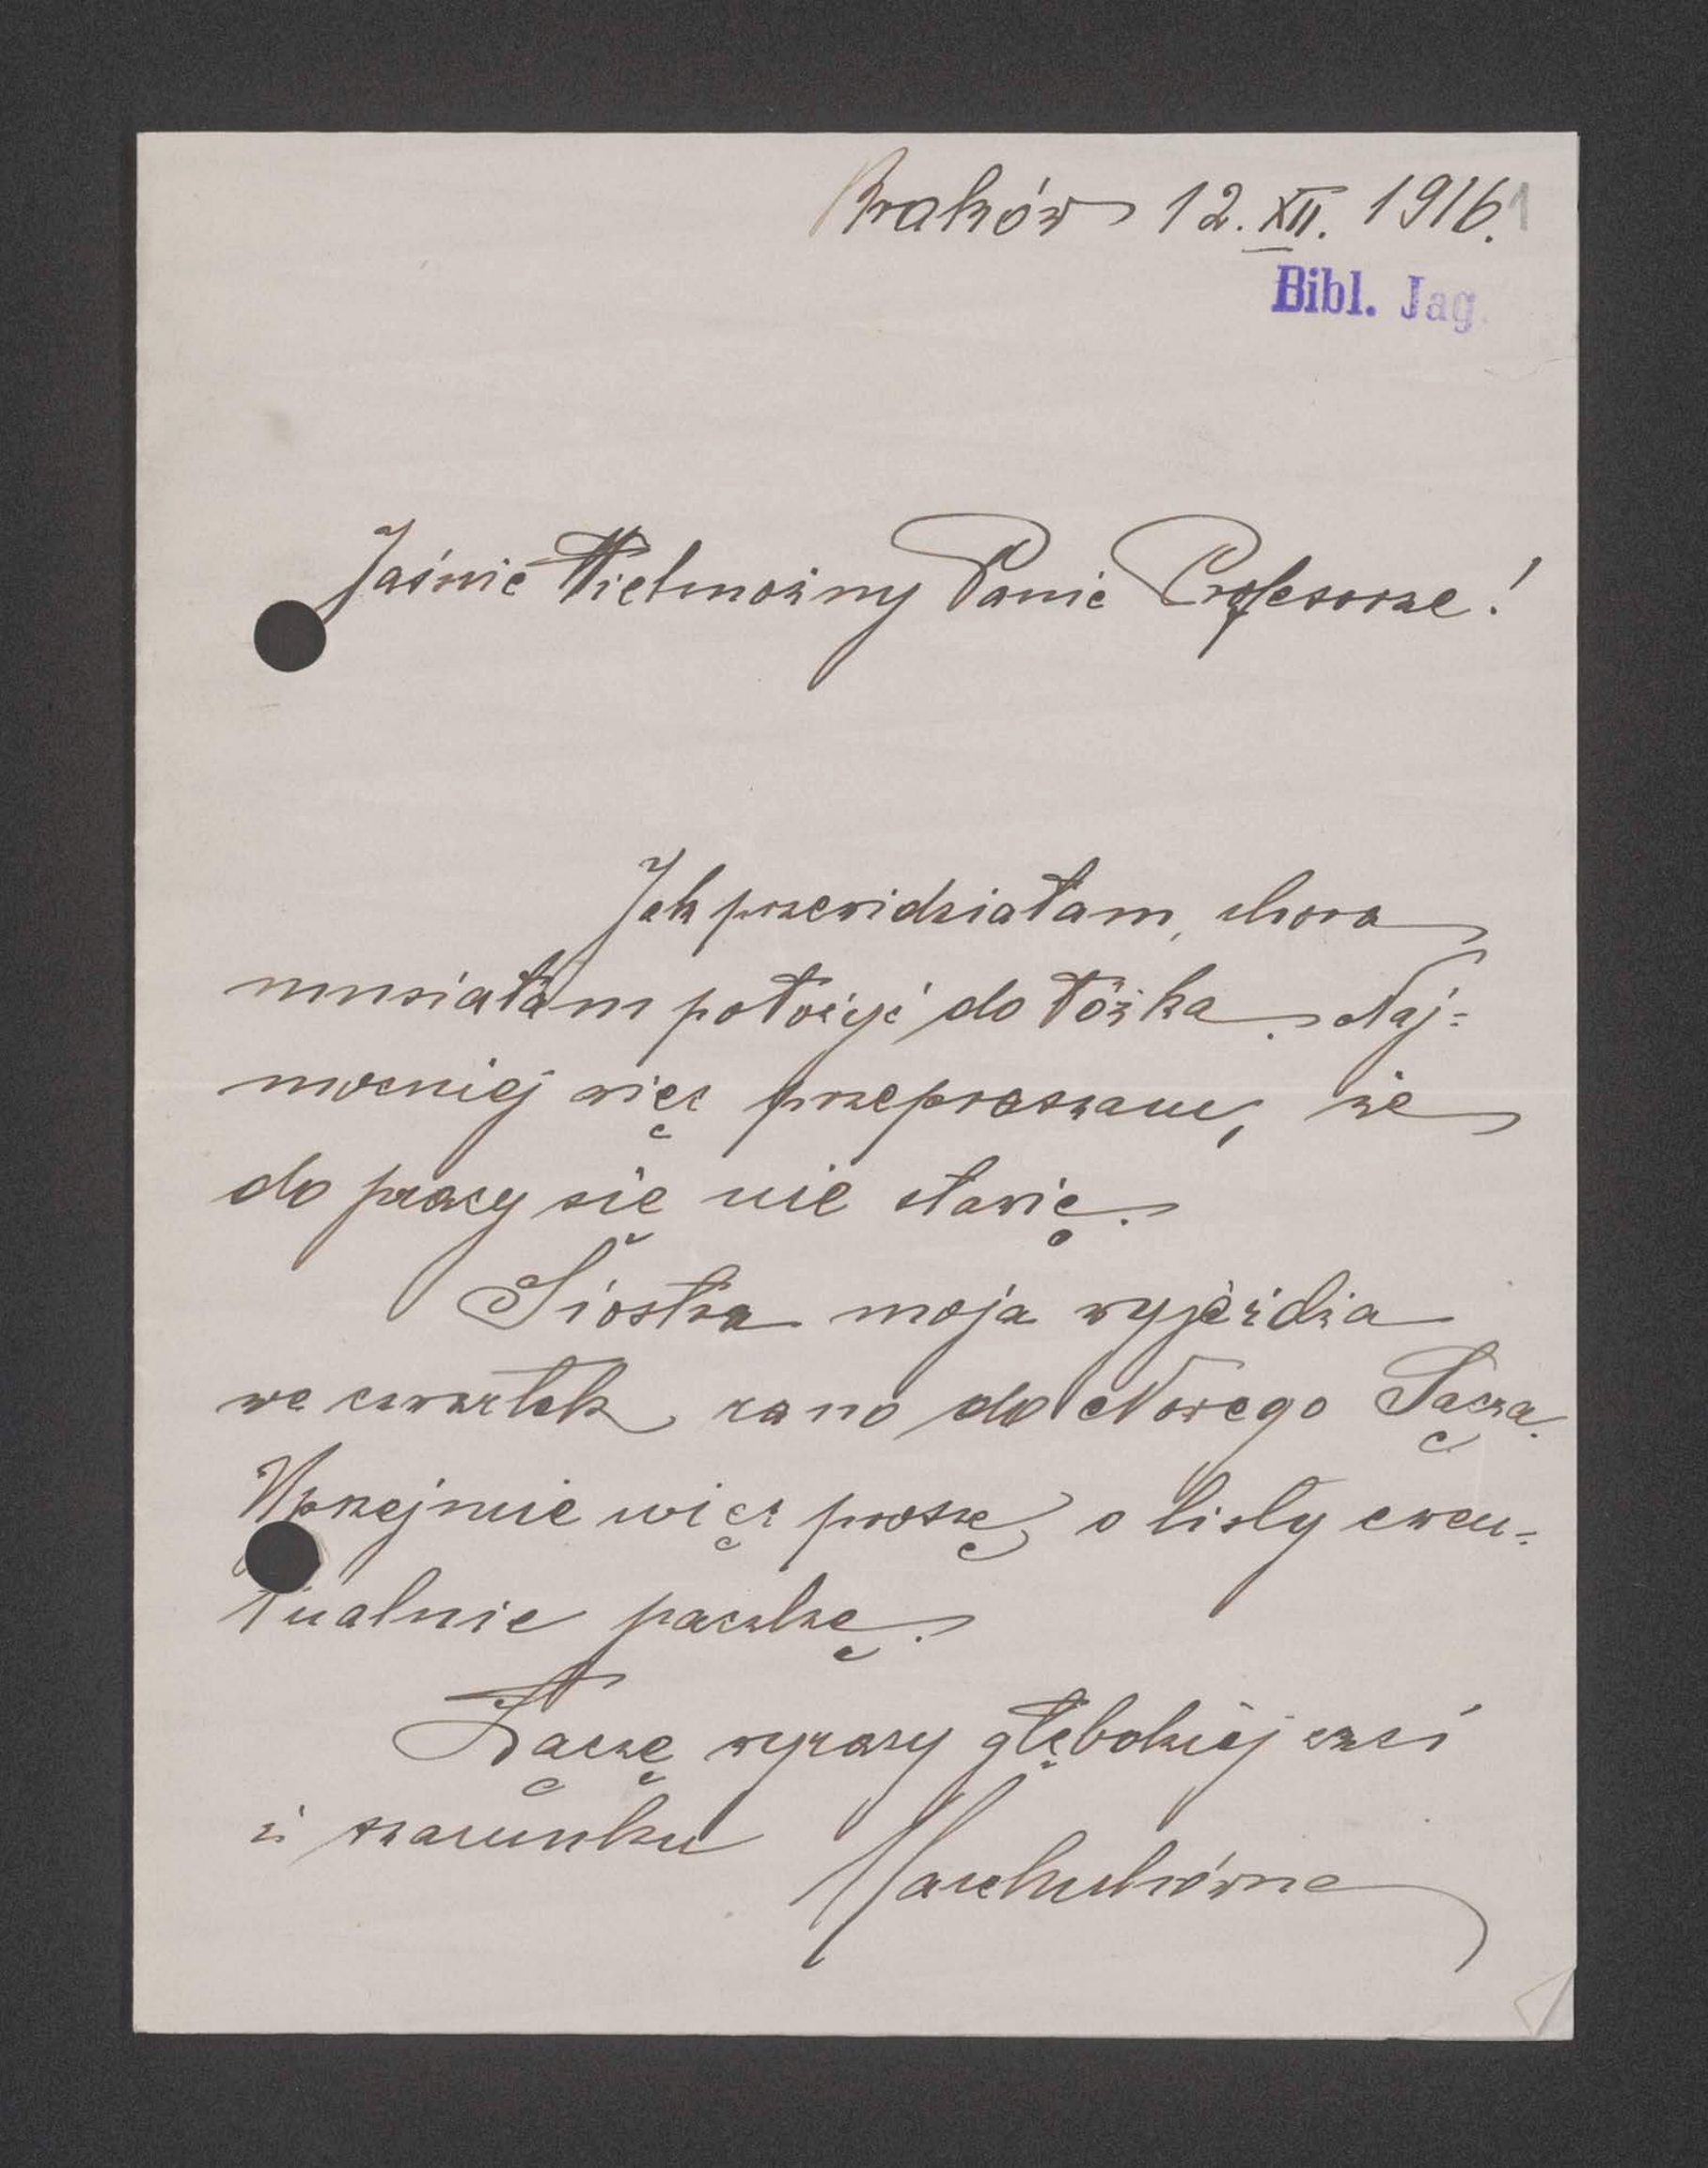 Kraków 12. XII. 1916. 1
Bibl. Jag.
Jaśnie Wielmożny Panie Profesorze!
Jak przewidziałam, chora
musiałam położyć do łóżka. Naj=
mocniej więc przepraszam, że
do pracy się nie stawię.
Siostra moja wyjeżdża
we czwartek rano do Nowego Sącza.
Uprzejmie więc proszę o listy ewen=
tualnie paczkę.
Łączę wyrazy głębokiej czci
i szacunku